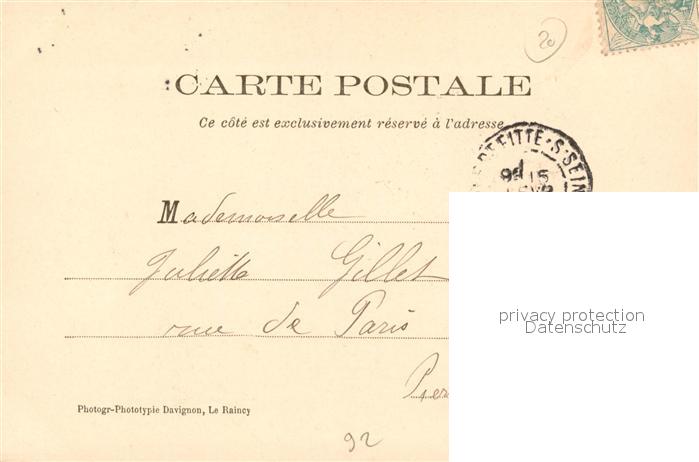 20
CARTE POSTALE
Ce côté est exclusivement réservé à l'adresse
REFITTE-S-SEIN
15
Mademoiselle
Juliette Gillet
rue de Paris
privacy protection
Datenschutz
Photogr-Phototypie Davignon, Le Raincy
92